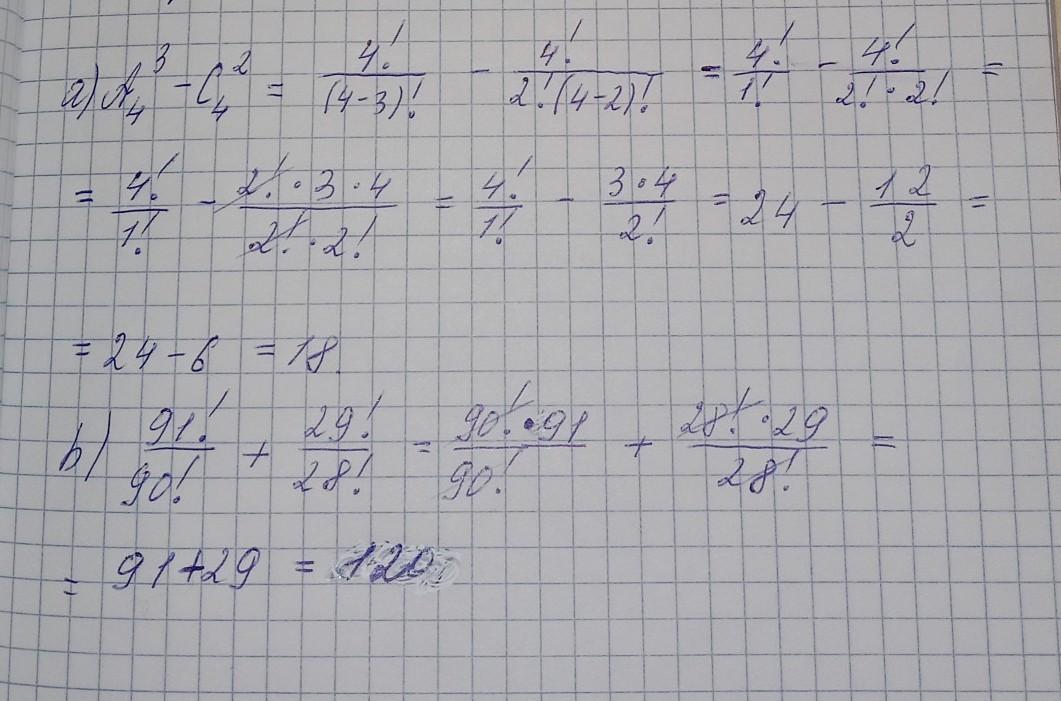 a) A₄³ - C₄² = 4!/(4-3)! - 4!/2!(4-2)! = 4!/1! - 4!/2!·2! =
= 4!/1! - 2!·3·4/2!·2! = 4!/1! - 3·4/2! = 24 - 12/2 =
= 24 - 6 = 18.
b) 91!/90! + 29!/28! = 90!·91/90! + 28!·29/28! =
= 91+29 = 120